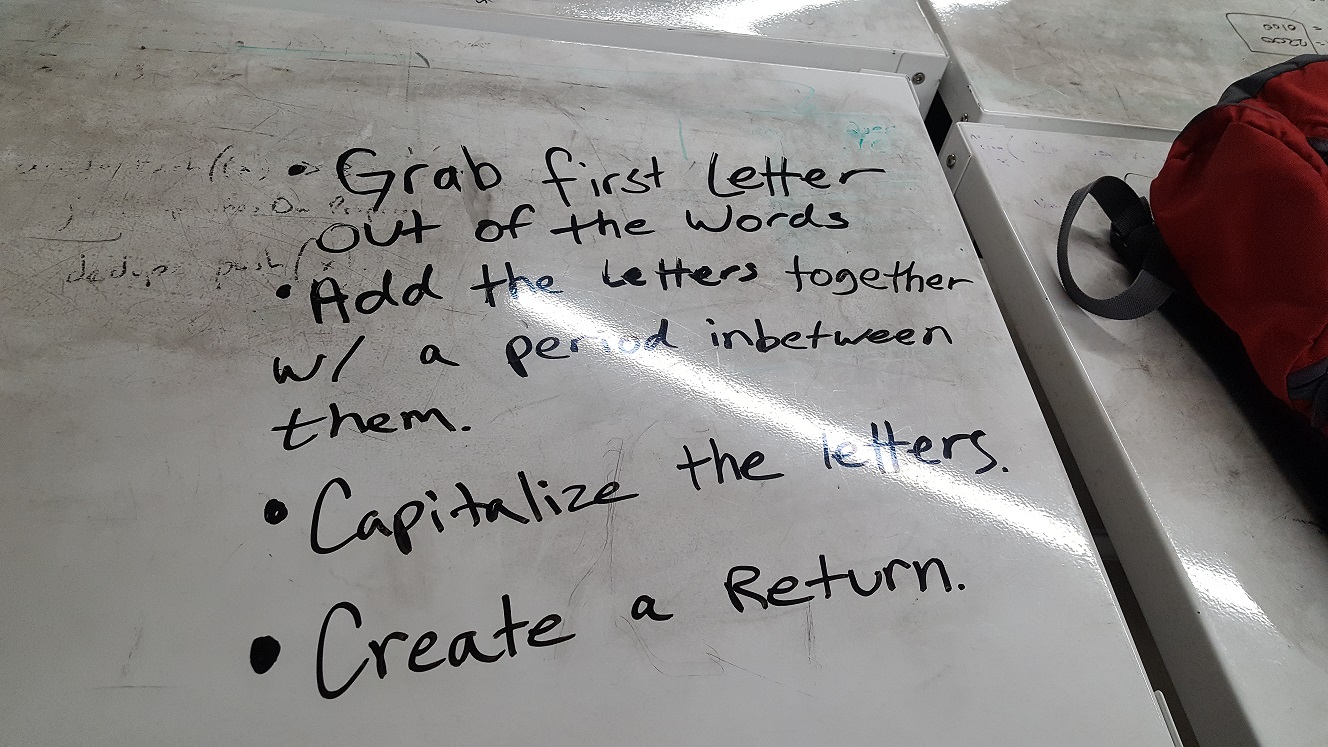 • Grab first Letter
out of the words
• Add the Letters together
w/ a period inbetween
them.
• Capitalize the letters.
• Create a Return.
dedupe push(
2200
0100